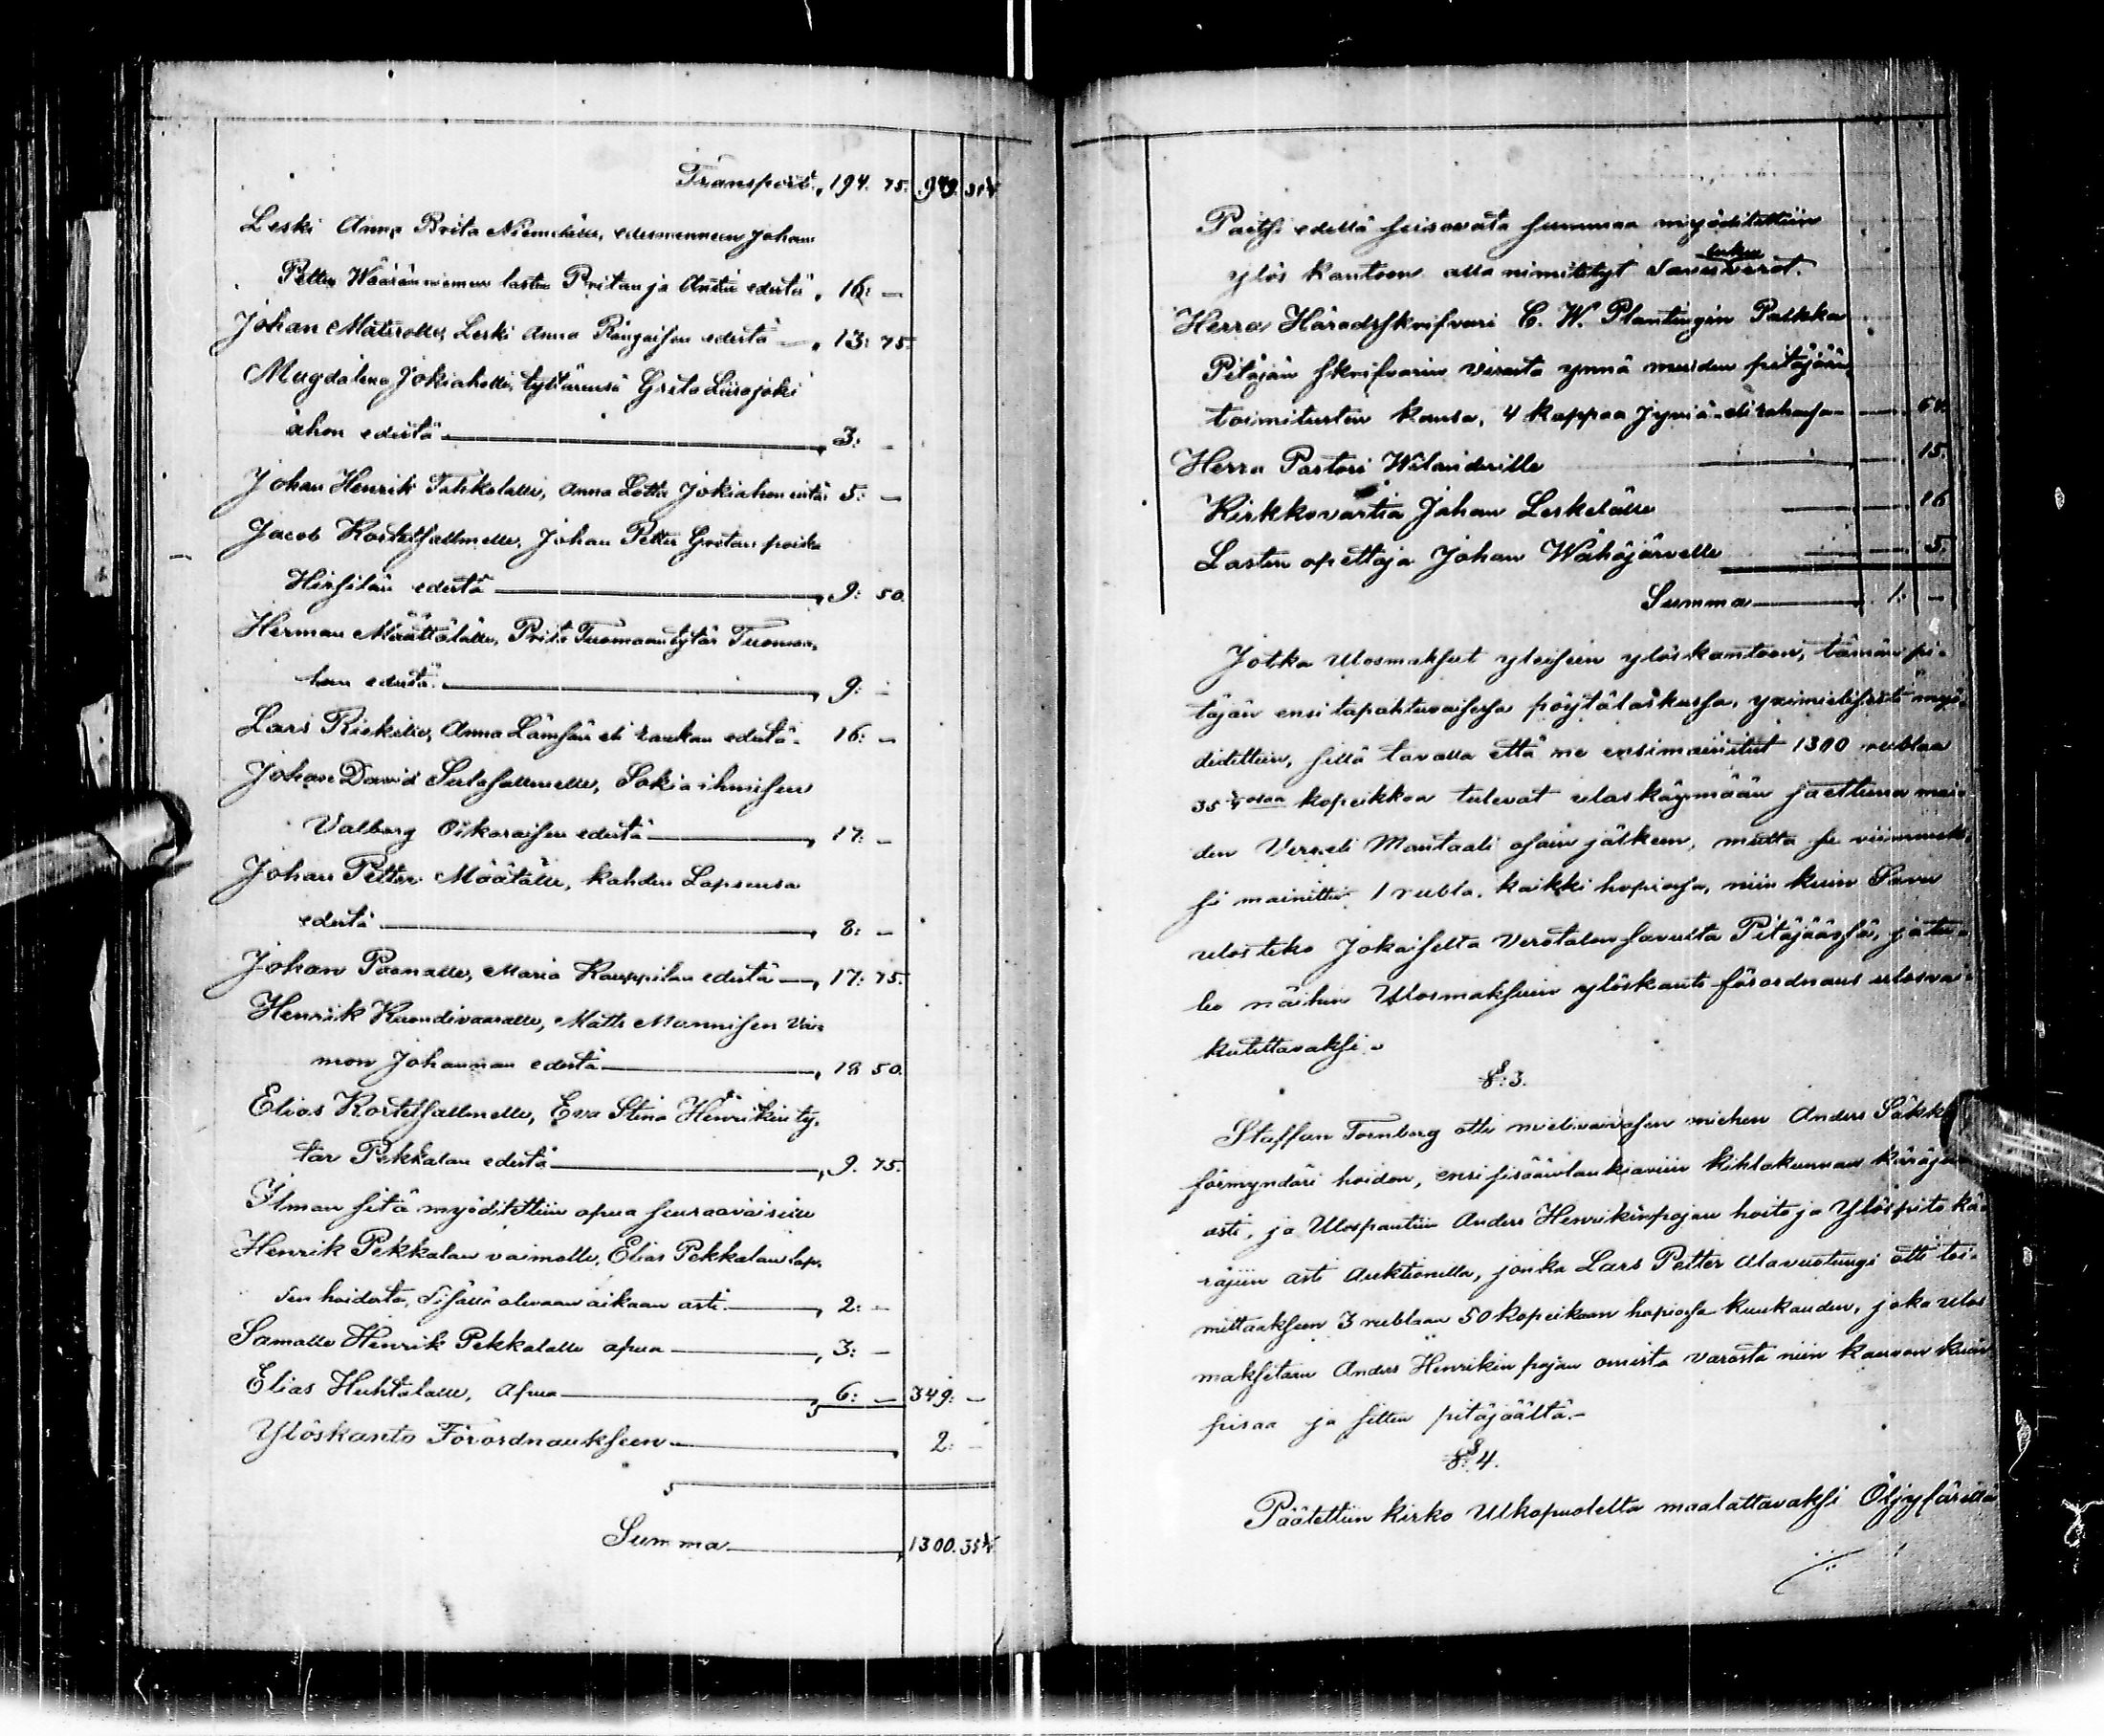 Transport „ 194. 75. 949. 35¼
Leski Anna Brita Niemelälle, edesmenneen Johan
Petter Wääränniemen lasten Pritan ja Antin edestä „ 16: —
Johan Määtälle, Leski Anna Kängaisen edestä — „ 13: 75.
Magdalena Jokiaholle, tyttärensä Greta Liisa Joki
ahon edestä — „ 3: —
Johan Henrik Tahkolalle, Anna Lotta Jokiahon estä 5: —
Jacob Kortetsallmelle, Johan Petter Gretan poika
Hirsilän edestä — „ 9: 50.
Herman Määttälälle, Prita Tuomaantytär Tuomaa,
hon edestä — „ 9: —
Lars Riekille, Anna Lämsän eli Raukan edestä - 16: —
Johan David Sulosallmelle, Sokia ihmisen
Valborg Oikoraisen edestä — „ 17: —
Johan Petter Määtälle, kahden Lapsensa
edestä — „ 8: —
Johan Paanalle, Maria Kauppilan edestä — „ 17: 75.
Henrik Kuandivaaralle, Matts Mannisen vai-
mon Johannan edestä — „ 18 50.
Elias Kortetsallmelle, Eva Stina Henrikin ty,
tär Pekkalan edestä — „ 9. 75.
Ilman sitä myöditettiin apua seuraavaisille
Henrik Pekkalan vaimolle, Elias Pekkalan lap,
sen hoidosta, sisällä olevaan aikaan asti. — „ 2: —
Samalle Henrik Pekkalalle apua — „ 3: —
Elias Huhtalalle, apua — 6: — 349: —
Ylöskanto Förordnaukseen — „ 2: —
Summa — „ 1300. 35¼
Paitsi edellä seisovata summaa myöditettiin
ylös kantoon alla nimitetyt Savuverot.
Herra Häradsskrifvari C. W. Plantingin Palkka
Pitäjän skrifvarin virasta ynnä muiden pitäjään
toimitusten kansa, 4 kappaa Jyviä eli rahasa — 64.
Herra Pastori Welanderille — 15.
Kirkkovartia Johan Leskelälle — 16
Lasten opettaja Johan Wähäjärvelle — 5.
Summa — 1: —
Jotka Ulosmaksut yleiseen ylöskantoon, tämän pi-
täjän ensi tapahtuvaisesa pöytälaskusa, yximielisesti myö-
ditettiin, sillä tavalla että ne ensimainitut 1300 rublaa
35 ¼ osaa kopeikkaa tulevat uloskäymään jaettuna mai-
den Vero eli Mantaali osain jälkeen, mutta se viimmek-
si mainittu 1 rubla. kaikki hopiasa, niin kuin Savu
ulosteko Jokaiselta Verotalon savulta Pitäjääsä, ja tu-
lee näihin Ulosmaksuin ylöskanto förordnaus ulosvai-
kutettavaksi.
§: 3.
Staffan Tornberg otti mielivaivasen miehen Anders Säkki
förmyndäri hoidon, ensi sisäänlankiaviin kihlakunnan käräjiin
asti, ja Ulospantiin Anders Henrikinpojan hoito ja Ylöspito kä-
räjiin asti Auktionilla, jonka Lars Petter Alavuotungi otti toi-
mittaakseen 3 rublaan 50 kopeikaan hopiasa kuukauden, joka ulos
maksetaan Anders Henrikin pojan omista varoista niin kauvan kuin
piisaa ja sitten pitäjäältä.-
§: 4.
Päätettiin kirko Ulkopuolelta maalattavaksi Öljyfärillä